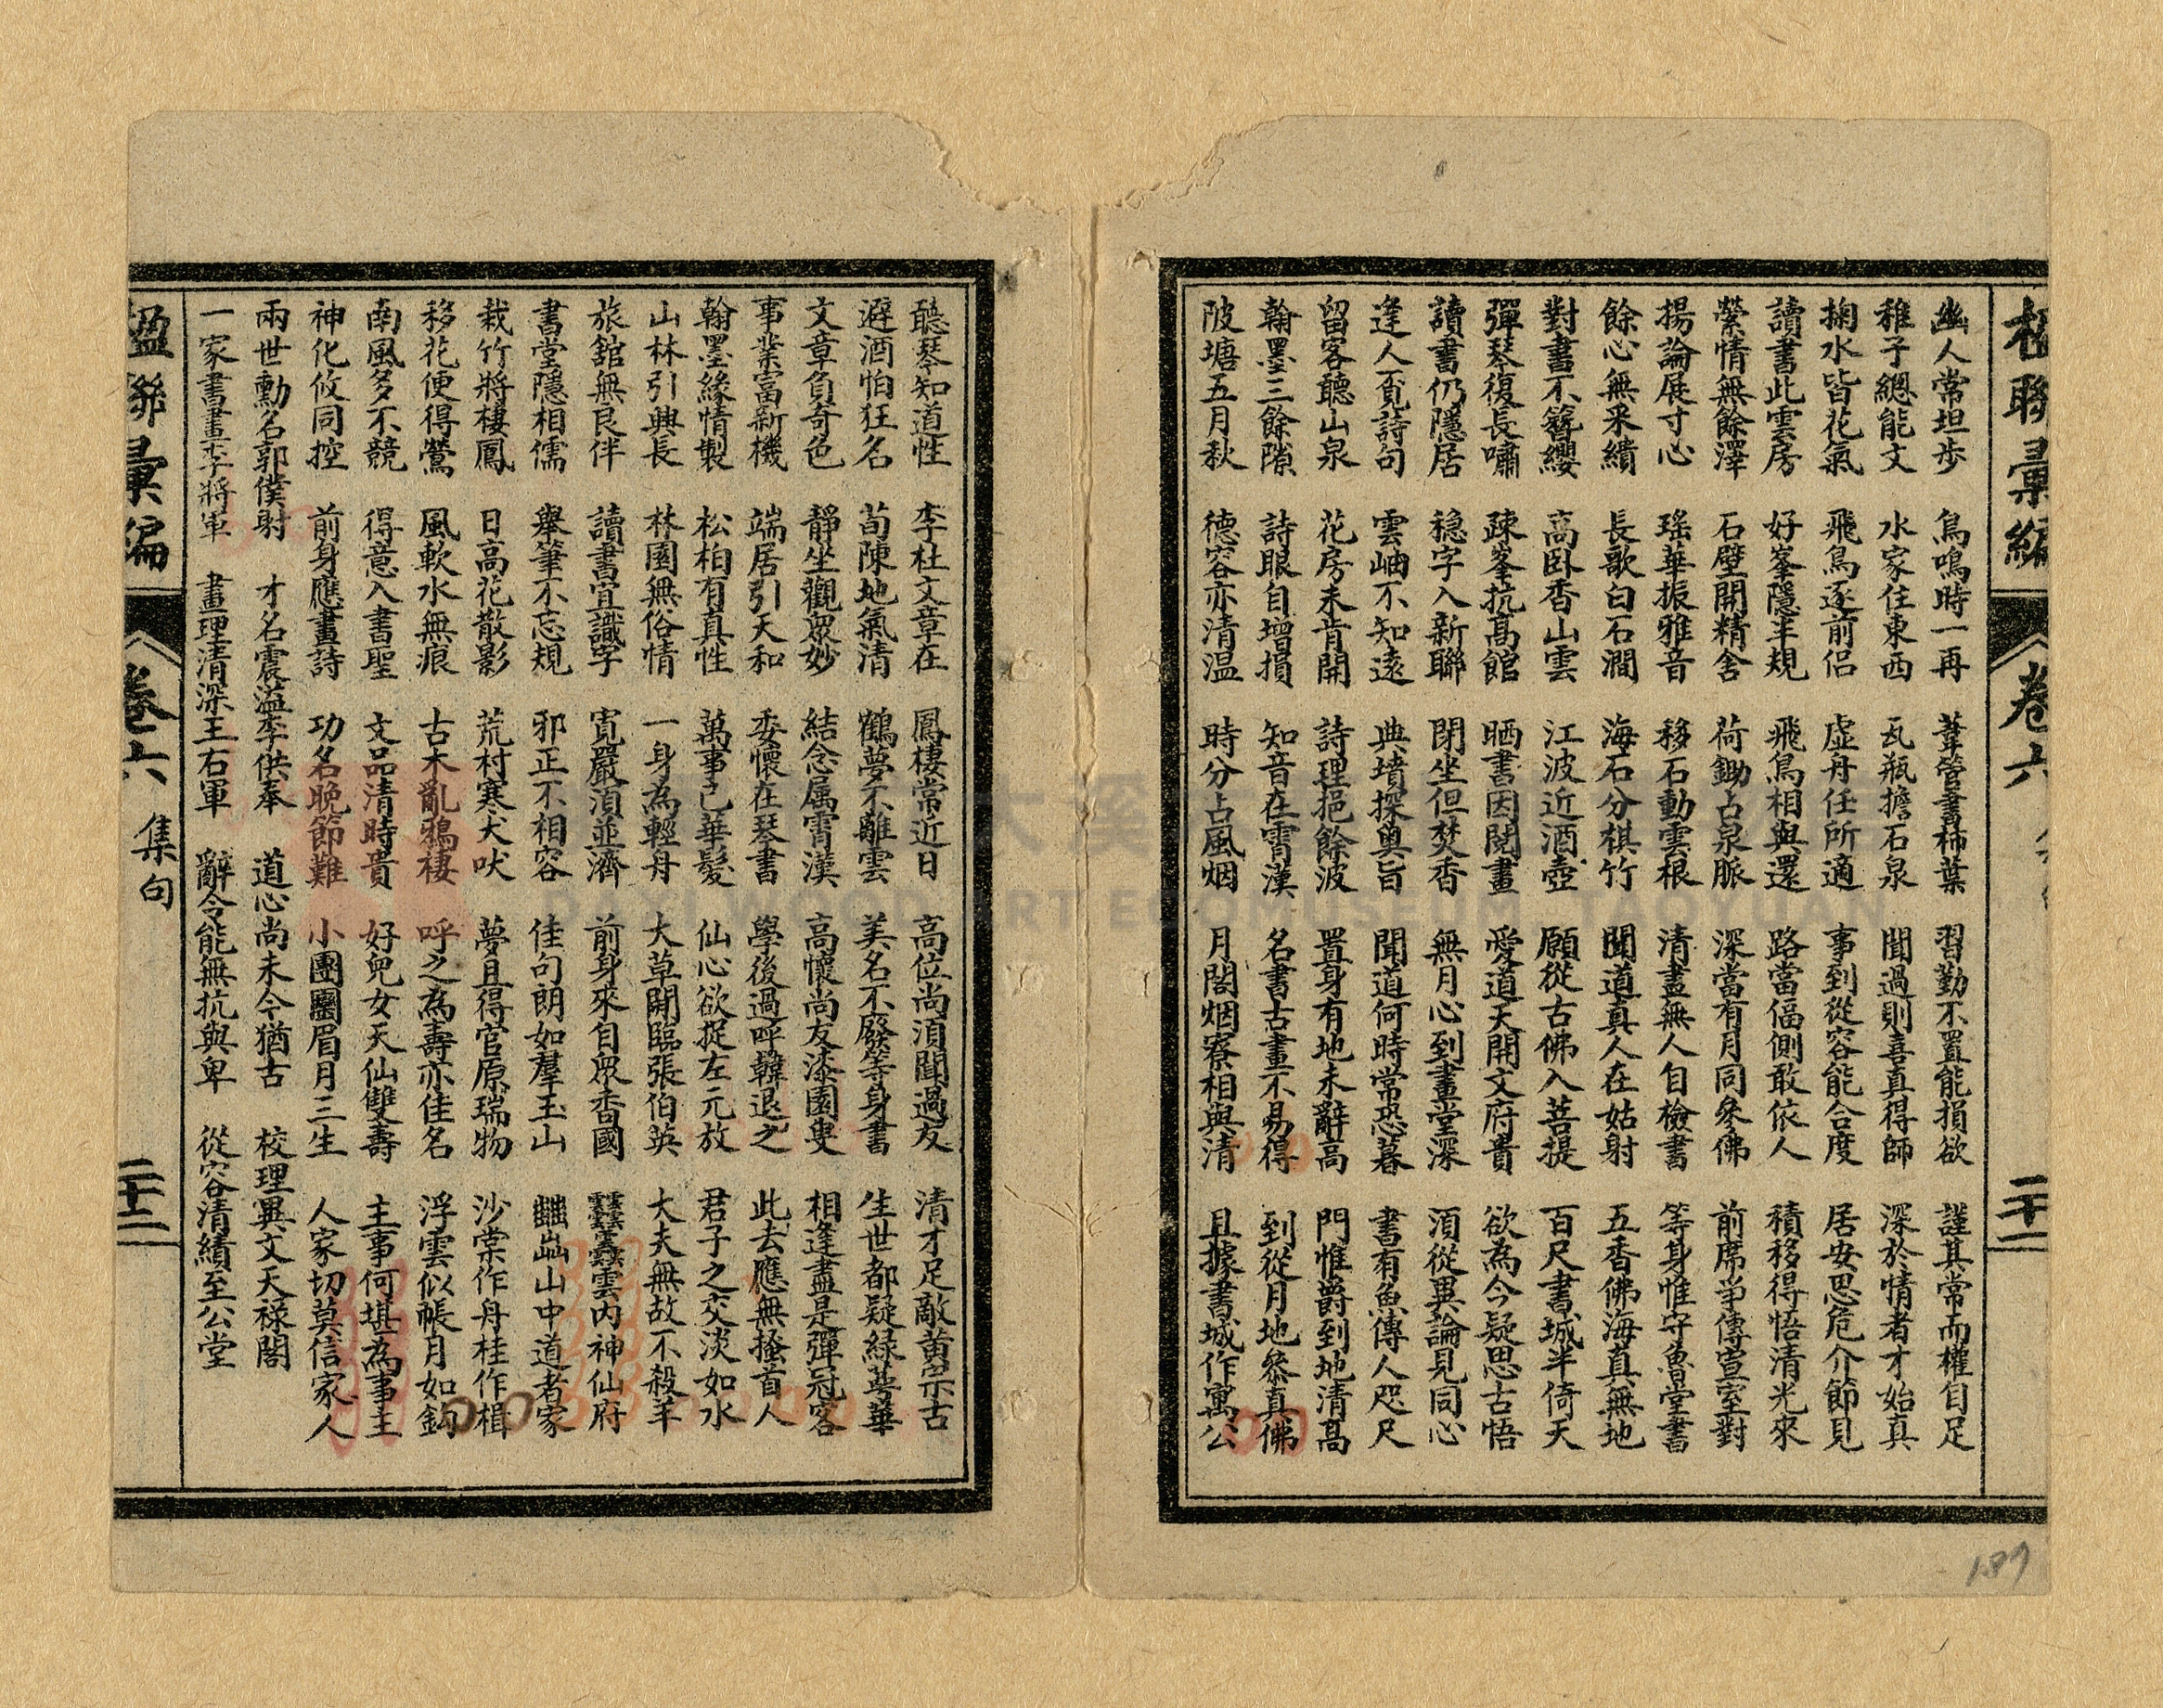 楹聯彙編 卷六 二十二
幽人常坦步 鳥鳴時一再 葦管書柿葉 習勤不置能損欲 謹其常而權自足
稚子總能文 水家住東西 瓦瓶擔石泉 聞過則喜真得師 深於情者才始真
掬水皆花氣 飛鳥逐前侶 虛舟任所適 事到從容能合度 居安思危介節見
讀書此雲房 好峯隱半規 飛鳥相與還 路當偪側敢依人 積移得悟清光來
縈情無餘澤 石壁開精舍 荷鋤占泉脈 深當有月同參佛 前席爭傳宣室對
揚論展寸心 瑤華振雅音 移石動雲根 清晝無人自檢書 等身惟守魯堂書
餘心無采繢 長歌白石澗 海石分棋竹 聞道真人在姑射 五香佛海真無地
對書不簪纓 高臥香山雲 江波近酒壺 願從古佛入菩提 百尺書城半倚天
彈琴復長嘯 疎峯抗高館 晒書因閱畫 愛道天開文府貴 欲為今疑思古悟
讀書仍隱居 穩字入新聯 閉坐但焚香 無月心到畫堂深 須從異論見同心
逢人覓詩句 雲岫不知遠 典墳探奧旨 聞道何時常恐暮 書有魚傳人咫尺
留客聽山泉 花房未肯開 詩理挹餘波 置身有地未辭高 門惟爵到地清高
翰墨三餘隙 詩眼自增損 知音在霄漢 名書古畫不易得 到從月地參真佛
陂塘五月秋 德容亦清溫 時分占風烟 月閣烟寮相與清 且據書城作寓公
聽琴知道性 李杜文章在 鳳棲常近日 高位尚須聞過友 清才足敵黃宗古
避酒怕狂名 荀陳地氣清 鶴夢不離雲 美名不廢等身書 生世都疑綠萼華
文章負奇色 靜坐觀眾妙 結念属霄漢 高懷尚友漆園叟 相逢盡是彈冠客
事業富新機 端居引天和 委懷在琴書 學後過呼韓退之 此去應無搔首人
翰墨緣情製 松柏有真性 萬事已華髮 仙心欲捉左元放 君子之交淡如水
山林引興長 林園無俗情 一身為輕舟 大草開臨張伯英 大夫無故不殺羊
旅舘無良伴 讀書宜識字 寬嚴須並濟 前身來自眾香國 靉靆雲内神仙府
書堂隱相儒 舉筆不忘規 邪正不相容 佳句朗如羣玉山 山中道者家
栽竹將棲鳳 日高花散影 荒村寒犬吠 夢且得官原瑞物 沙棠作舟桂作楫
移花便得鶯 風軟水無痕 古木亂鴉棲 呼之為壽亦佳名 浮雲似帳月如鈎
南風多不競 得意入書聖 文品清時貴 好兒女天仙雙壽 主事何堪為事主
神化攸同控 前身應畫詩 功名晚節難 小團團眉月三生 人家切莫信家人
兩世勳名郭僕射 才名震溢李供奉 道心尚未今猶古 校理異文天祿閣
一家書畫李將軍 畫理清深王右軍 辭令能無抗與卑 從容清績至公堂
楹聯彙編 卷六 集句 二十二
187
大溪
DAXI WOOD ART ECOMUSEUM, TAOYUAN